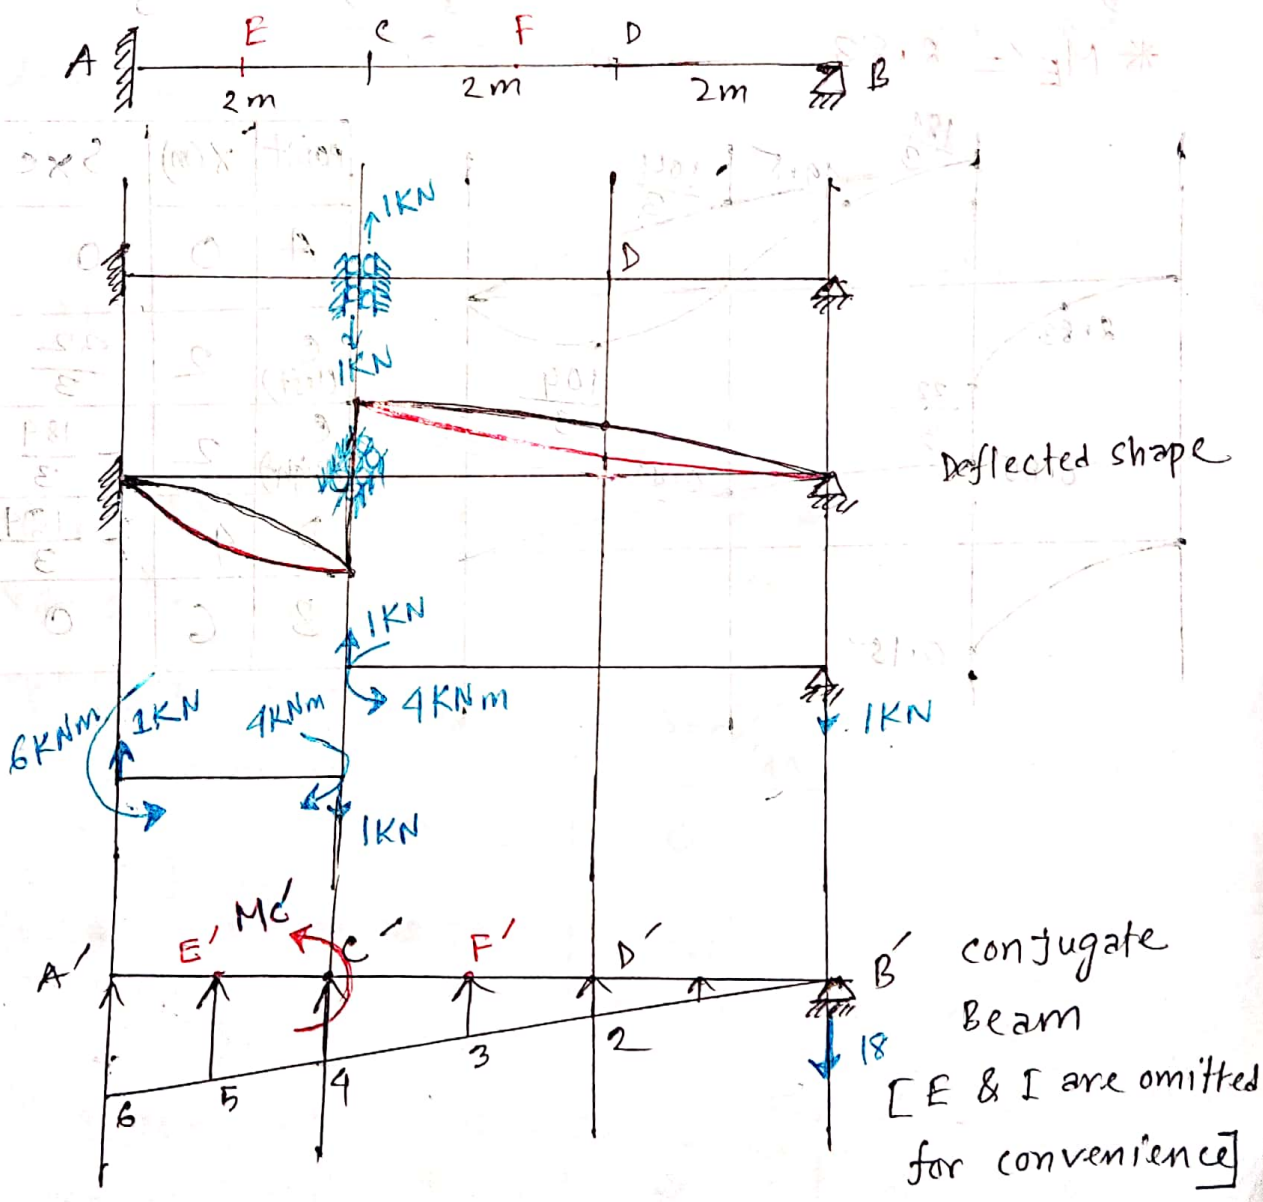 E C F D
A 2m 2m 2m B
1KN
D
1KN
Deflected shape
1KN
4KNm
1KN
6KNm 1KN 4KNm
1KN
Mc'
A' E' C' F' D' B' conjugate
Beam
6 5 4 3 2 18
[E & I are omitted
for convenience]